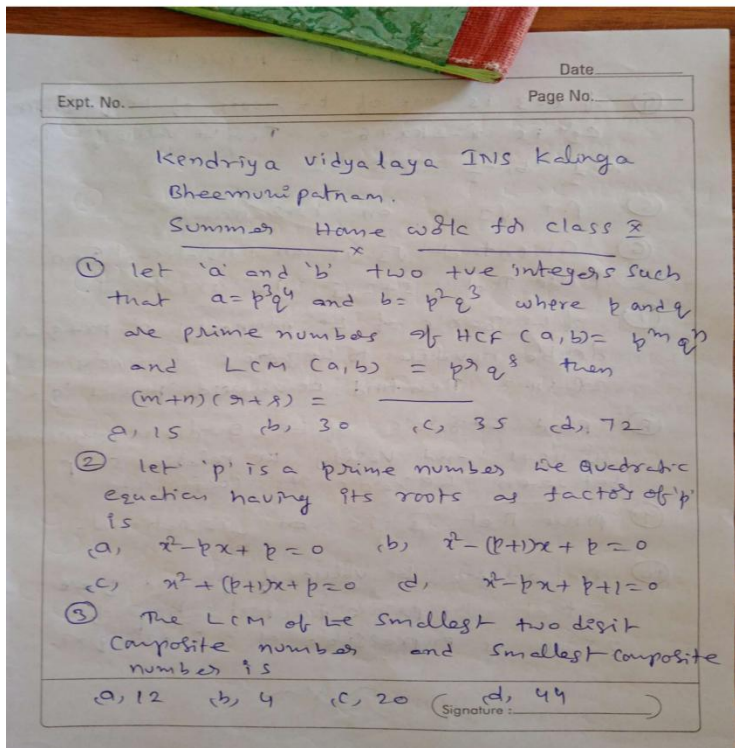 Date
Expt. No.
Page No.
Kendriya vidyalaya INS Kalinga
Bheemunipatnam.
Summer Home work for class X
x
① let 'a' and 'b' two +ve integers such
that a = p³q⁴ and b = p²q³ where p and q
are prime numbers if HCF (a,b) = pᵐ qⁿ
and LCM (a,b) = pʳ qˢ then
(m+n)(r+s) =
a, 15 (b, 30 (c, 35 (d, 72
② let 'p' is a prime number the Quadratic
equation having its roots as factor of 'p'
is
(a, x²-px+p=0 (b, x²-(p+1)x+p=0
(c, x²+(p+1)x+p=0 d, x²-px+p+1=0
③ The LCM of the smallest two digit
composite number and smallest composite
number is
(a, 12 (b, 4 (c, 20 (d, 44
Signature :